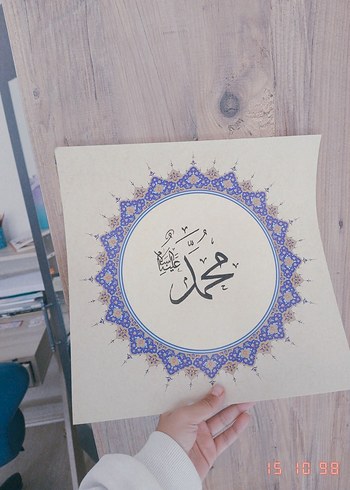 محمد
عليه السلام
15 10 98